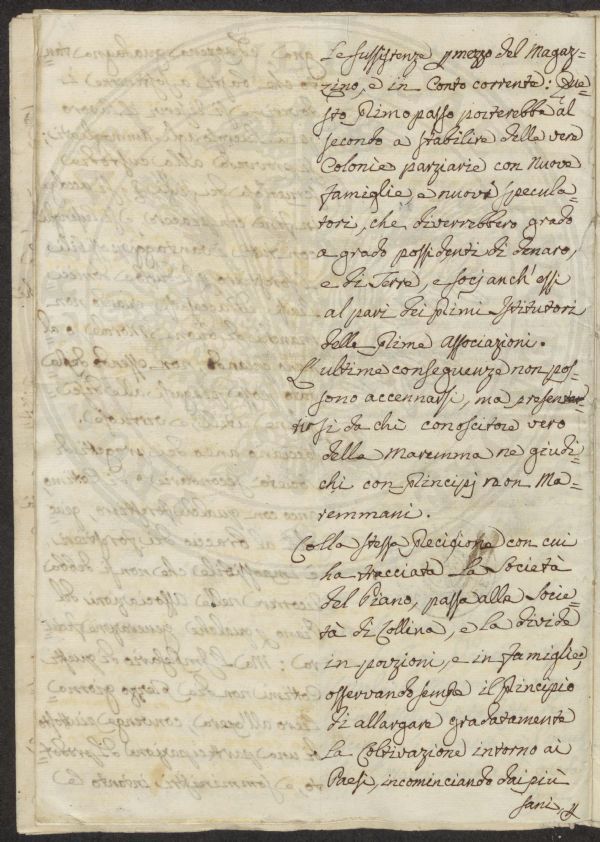 Le sussistenze p mezzo del Magaz=
zino, e in Conto corrente: Que=
sto Primo passo porterebbe al
secondo a stabilire delle vere
Colonie parziarie con nuove
famiglie, e nuovi specula=
tori, che diverrebbero grado
a grado possidenti di denaro,
e di Terre, e socj anch'essi
al pari dei Primi Istitutori
delle Prime associazioni.
L'ultime conseguenze non pos=
sono accennarsi, ma presentir
si da chi conoscitore vero
della Maremma ne giudi=
chi con Principj non Ma=
remmani.
Colla stessa Precisione con cui
ha tracciata la Società
del Piano, passa alla Socie=
tà di Collina, e la divide
in porzioni, e in famiglie,
osservando sempre il Principio
di allargare gradatamente
la Coltivazione intorno ai
Paesi, incominciando dai più
sani, p